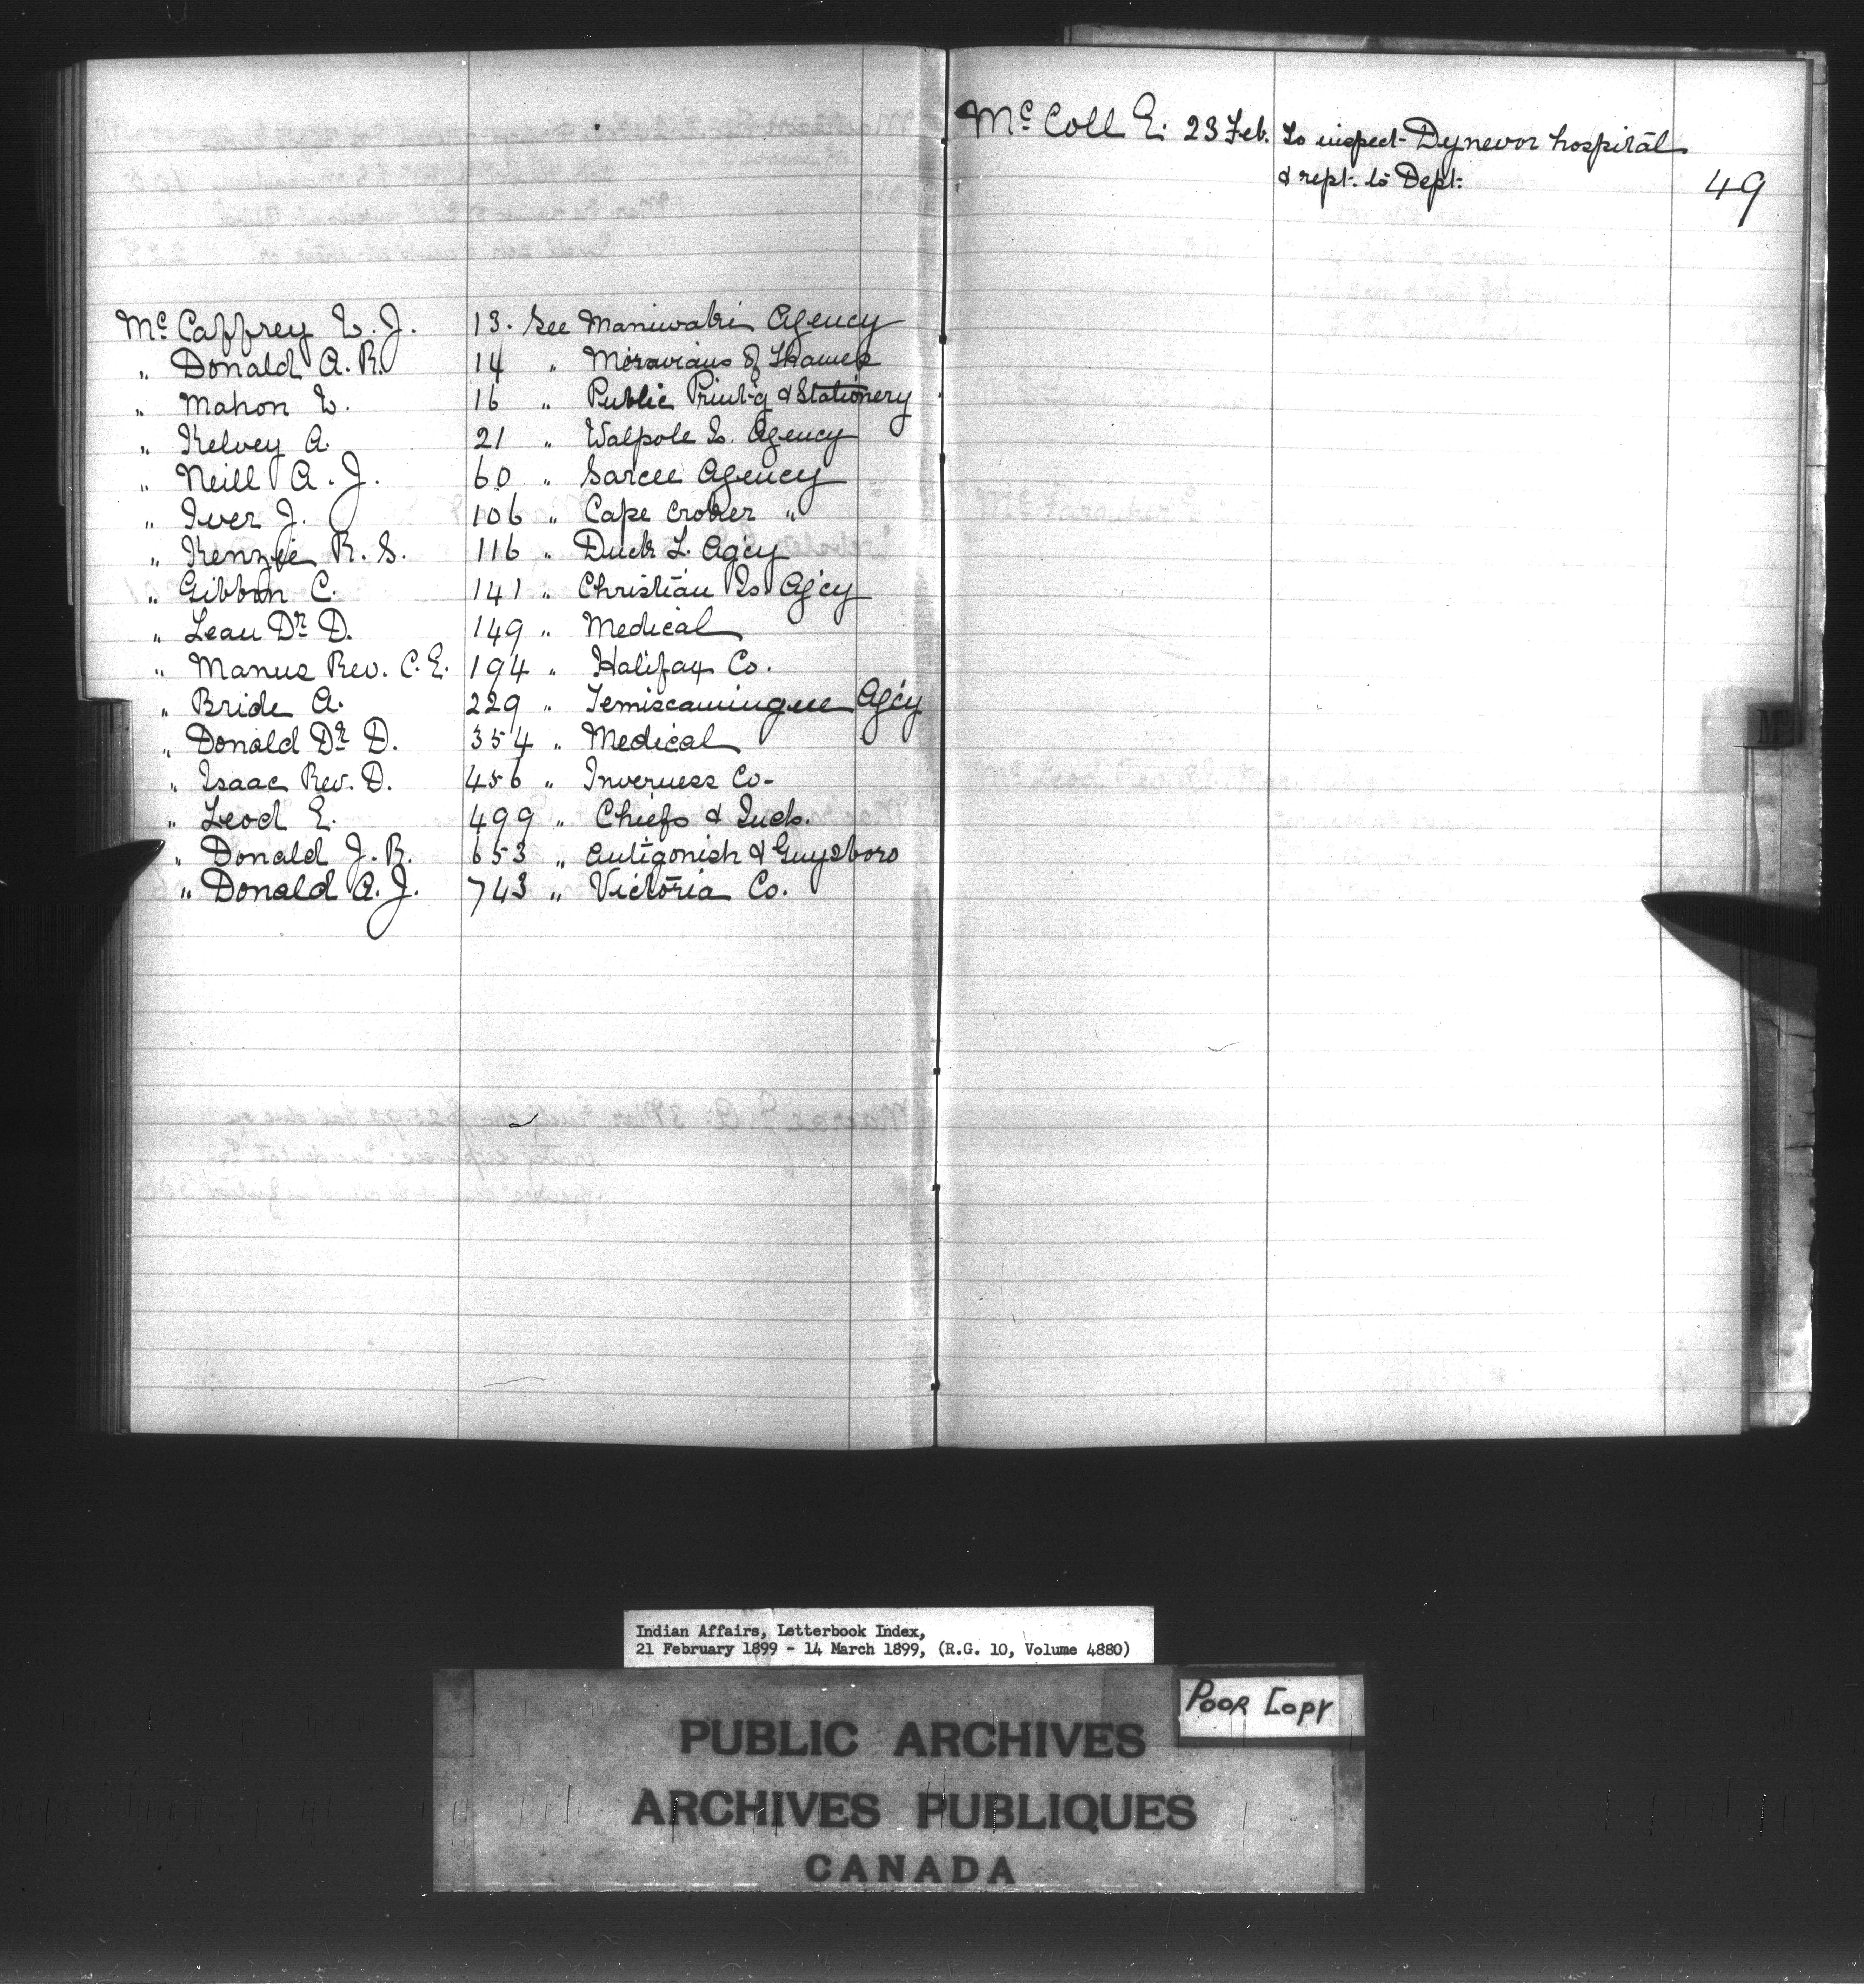 Mc Caffrey L. J. 13. See Maniwaki Agency
" Donald A. R. 14 " Moravians of Thames
" Mahon L. 16 " Public Print'g & Stationery
" Kelvey A. 21 " Walpole Is. Agency
" Neill A. J. 60 " Sarcee Agency
" Iver J. 106 " Cape Croker "
" Kenzie R. S. 116 " Duck L. Agcy
" Gibbon C. 141 " Christian Is Ag'cy
" Lean Dr D. 149 " Medical
" Manus Rev. C. E. 194 " Halifax Co.
" Bride A. 229 " Temiscamingue Ag'cy
" Donald Dr D. 354 " Medical
" Isaac Rev. D. 456 " Inverness Co-
" Leod E. 499 " Chiefs & Inds.
" Donald J. R. 653 " Antigonish & Guysboro
" Donald A. J. 743 " Victoria Co.
Mc Coll E. 23 Feb. To inspect Dynevor hospital
& rept. to Dept. 49
Mc
Indian Affairs, Letterbook Index,
21 February 1899 - 14 March 1899, (R.G. 10, Volume 4880)
Poor Copy
PUBLIC ARCHIVES
ARCHIVES PUBLIQUES
CANADA